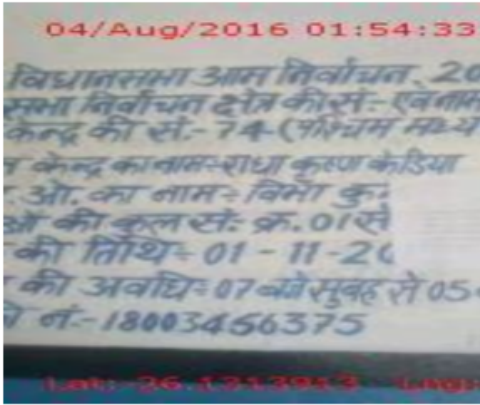 04/Aug/2016 01:54:33
विधानसभा आम निर्वाचन, 20
सभा निर्वाचन क्षेत्र की सं:- एवं नाम
केन्द्र की सं.- 74 (पश्चिम मध्य
केन्द्र का नाम:- राधा कृष्ण केडिया
. ओ. का नाम:- विभा कु
ओं की कुल सं: क्र. 01 से
की तिथि:- 01 - 11 - 20
की अवधि:- 07 बजे सुबह से 05
नं.- 18003456375
Lat:-26.1713913 Lng: